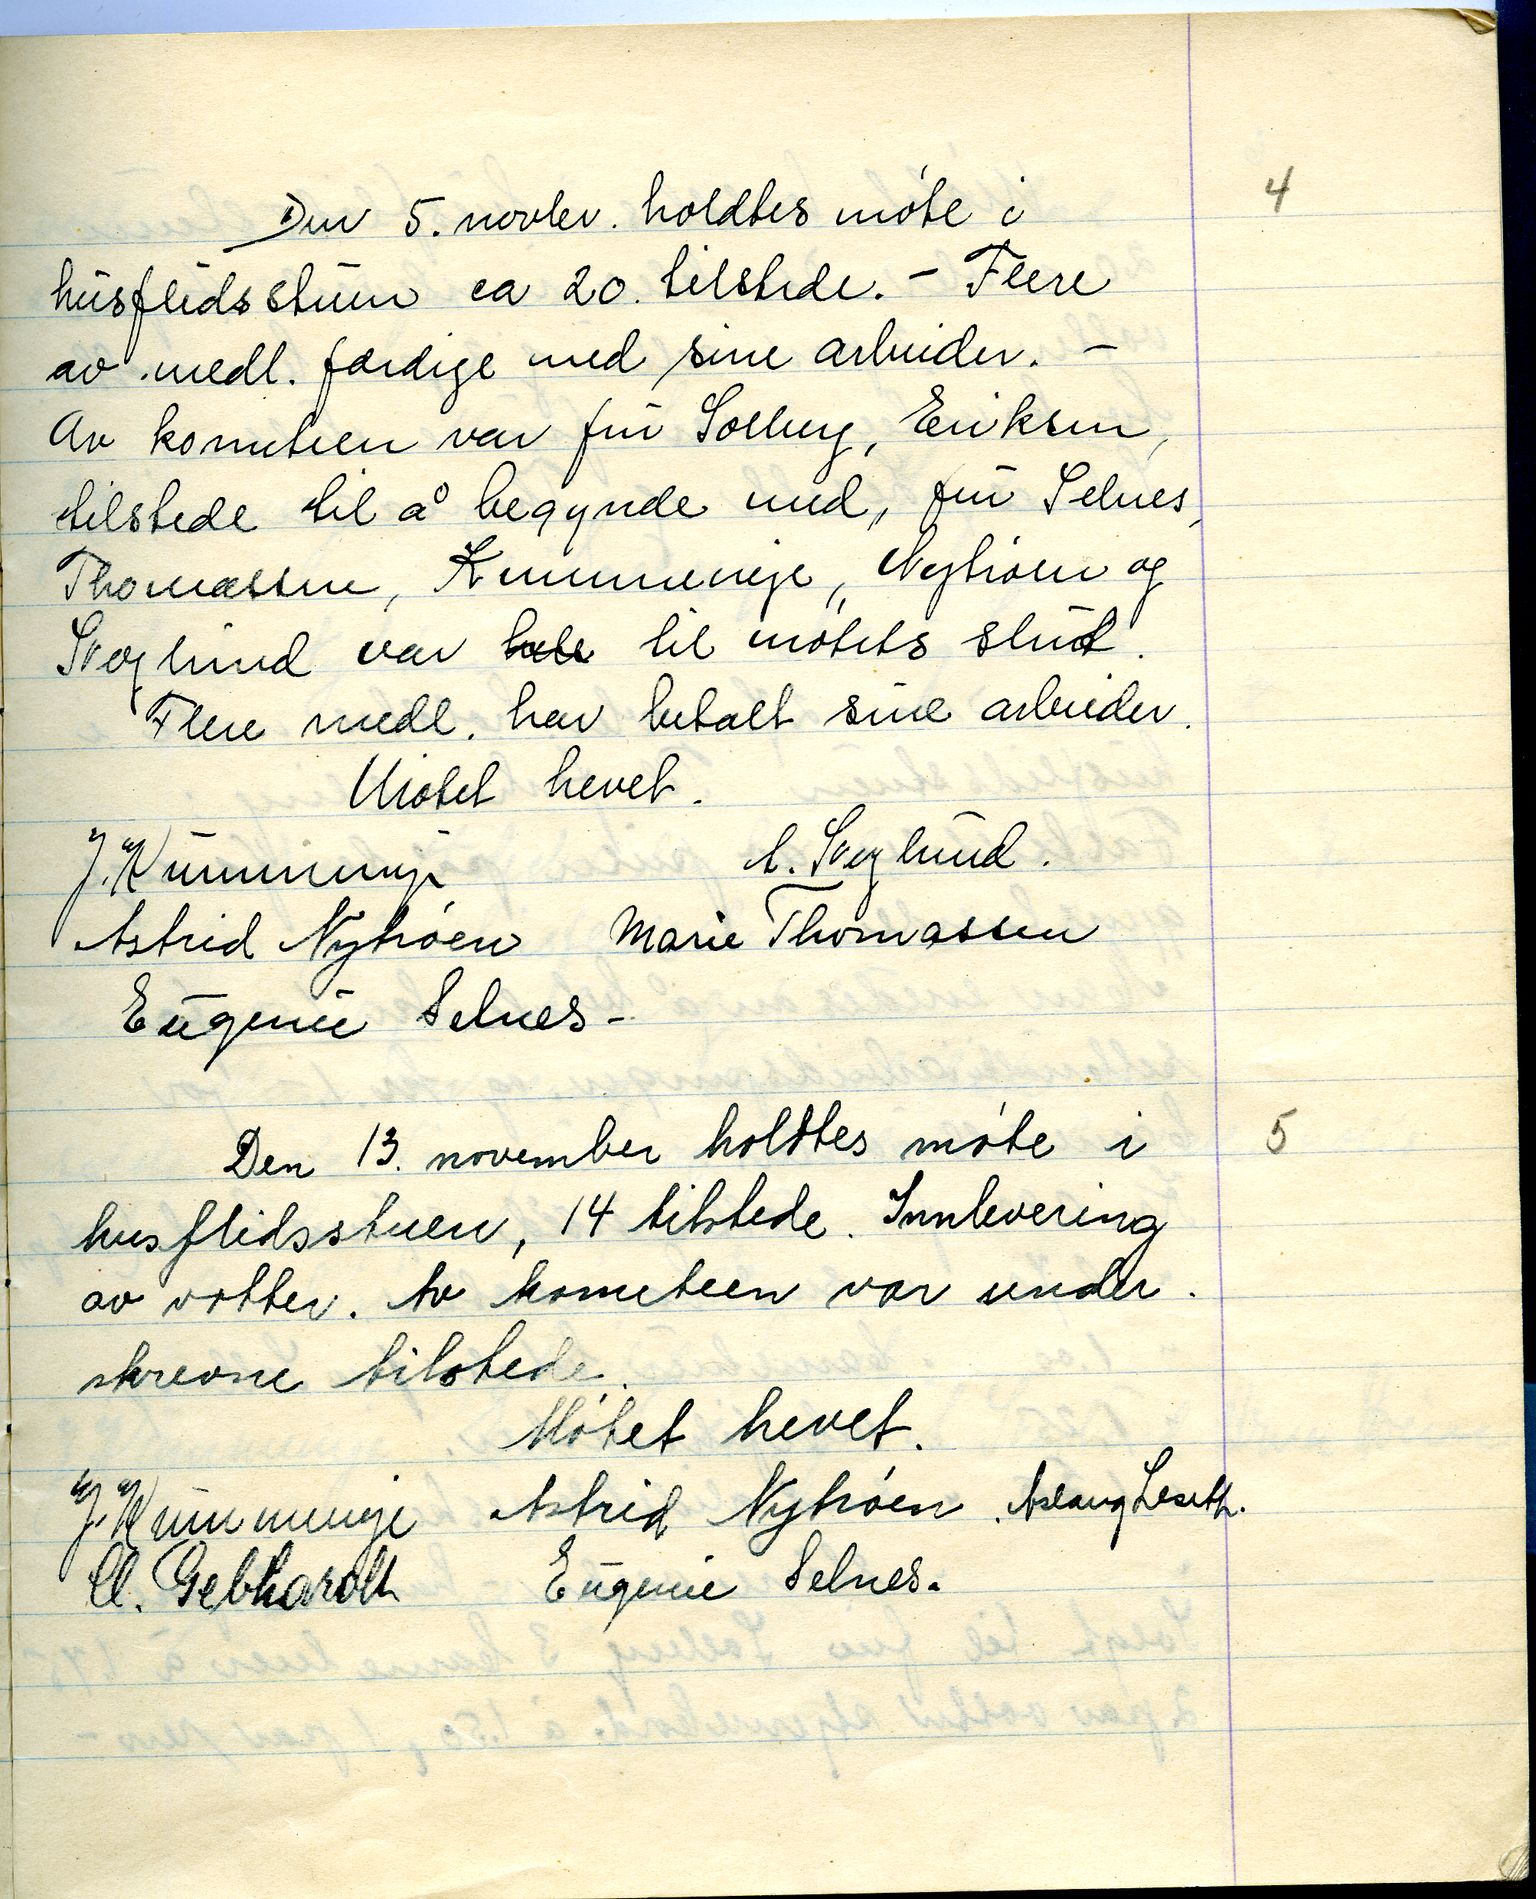 4
Den 5. novber. holdtes møte i
husflidsstuen ca 20. tilstede. – Flere
av medl. færdige med sine arbeider. –
Av komiteen var fru Solberg, Eriksen,
tilstede til å begynde med, fru Selnes,
Thomassen, Kummeneje, Nytrøen og
Sveglund var til møtets slut.
Flere medl. har betalt sine arbeider.
Møtet hevet.
J. Kummeneje A. Sveglund.
Astrid Nytrøen Marie Thomassen
Eugenie Selnes –
5
Den 13. november holdtes møte i
husflidsstuen, 14 tilstede. Innlevering
av votter. Av kometeen var under-
skrevne tilstede.
Møtet hevet.
J. Kummeneje Astrid Nytrøen. Aslaug Leseth.
Cl. Gebhardt Eugenie Selnes.